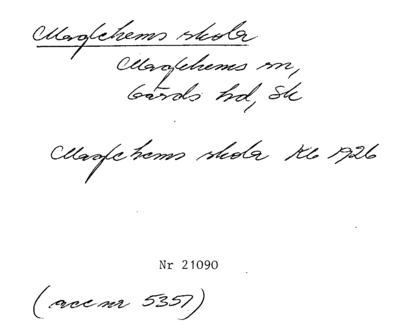 Maglehems skola
Maglehems sn,
Gärds hd, Sk
Maglehems skola Kb 1926
Nr 21090
(acc nr 5357)